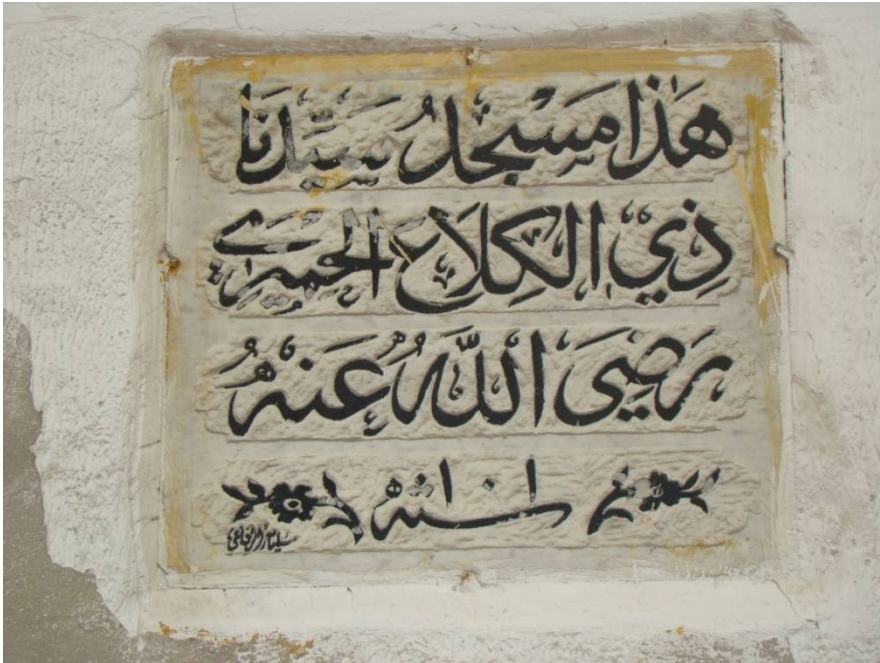 هَذَا مَسْجِدُ سَيِّدِنَا
ذِي الكِلَاعِ الحِمْيَرِي
رَضِيَ اللَّهُ عَنْهُ